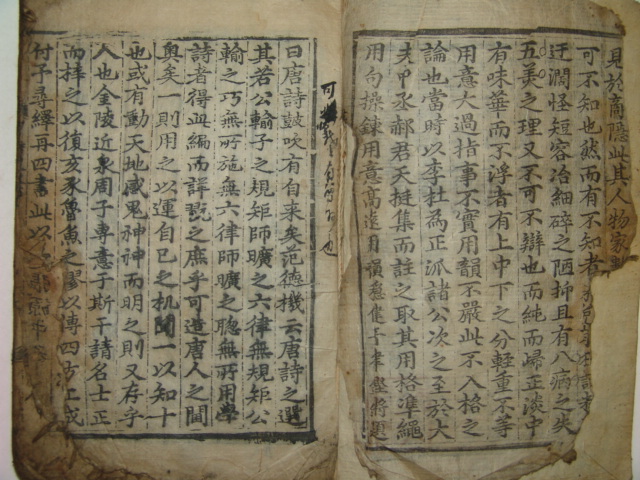 見於商隱此其人物家
可不知也然而有不知者
迂濶怪短容冶細碎之陋抑且有八病之失
五美之理又不可不辯也而純而歸正淡中
有味華而不浮者有上中下之分輕重不等
用意大過指事不實用韻不嚴此不入格之
論也當時以李杜為正派諸公次之至於大
夫中丞郝君天挺集而註之取其用格凖繩
用句操鍊用意高遠
曰唐詩鼓吹有自来矣范德機云唐詩之選
其若公輸子之規矩師曠之六律無規矩公
輸之巧無所施無六律師曠之聰無所用學
詩者得此編而詳翫之庶乎可造唐人之閫
奥矣一則用之以運自已之机聞一以知十
也或有動天地感鬼神神而明之則又存乎
人也金陵近泉周子專意于斯干請名士正
而梓之以復亥豕魯魚之謬以傳四方工戍
付予尋繹再四書此以